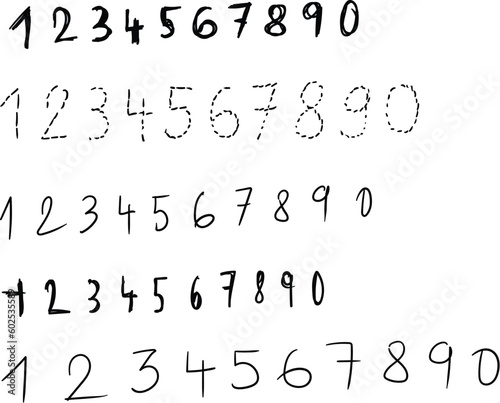 1 2 3 4 5 6 7 8 9 0
1 2 3 4 5 6 7 8 9 0
1 2 3 4 5 6 7 8 9 0
1 2 3 4 5 6 7 8 9 0
1 2 3 4 5 6 7 8 9 0
Adobe Stock | #602535589